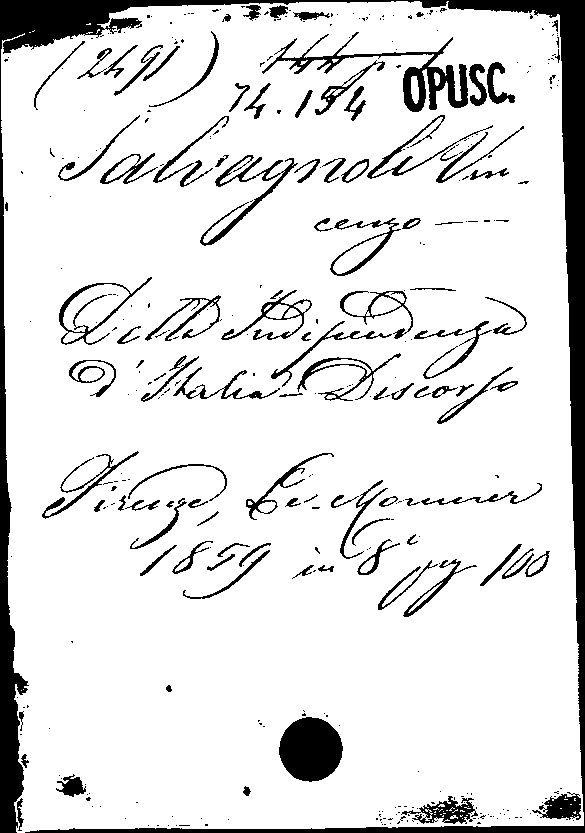 (2491) 144 p. 1
74.154 OPUSC.
Salvagnoli Vin-
cenzo —
Della Indipendenza
d'Italia - Discorso
Firenze, Le-Monnier
1859 in 8° pag 100